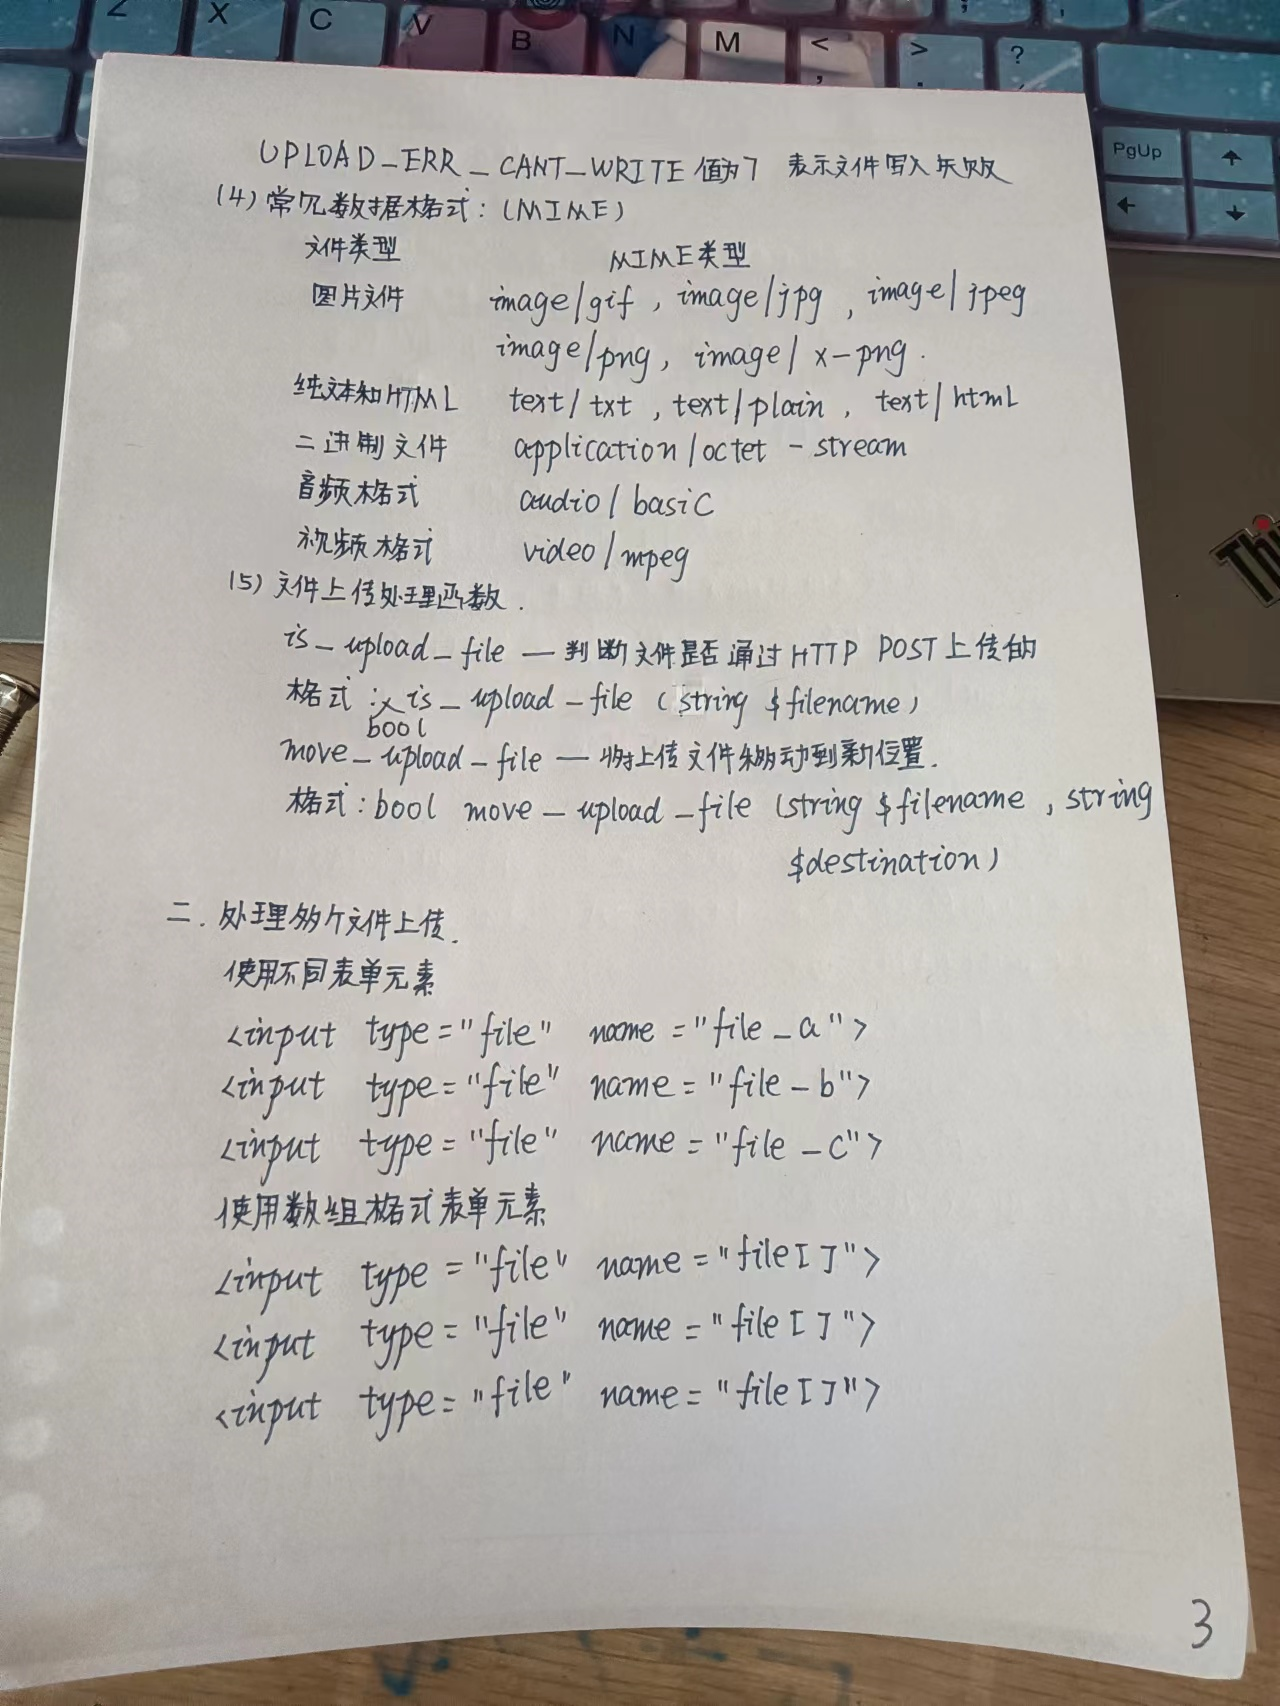 Z X C V B N M < , > . ? ;
PgUp
UPLOAD_ERR_CANT_WRITE 值为7 表示文件写入失败
(4) 常见数据格式：(MIME)
文件类型 MIME类型
图片文件 image/gif , image/jpg , image/jpeg
image/png, image/x-png.
纯文本和HTML text/txt , text/plain , text/html
二进制文件 application/octet-stream
音频格式 audio/basic
视频格式 video/mpeg
(5) 文件上传处理函数.
is_upload_file — 判断文件是否通过HTTP POST上传的
格式：bool is_upload_file (string $filename)
move_upload_file — 将上传文件移动到新位置.
格式：bool move_upload_file (string $filename , string
$destination)
二. 处理多个文件上传.
使用不同表单元素
<input type="file" name="file_a">
<input type="file" name="file_b">
<input type="file" name="file_c">
使用数组格式表单元素
<input type="file" name="file[]">
<input type="file" name="file[]">
<input type="file" name="file[]">
3